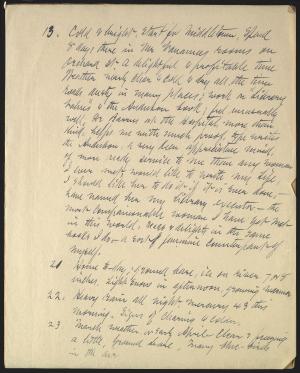 13. Cold & bright, start for Middletown. Spend
8 days there in Mr Vanamees rooms on
Orchard St. A delightful & profitable time
Weather mostly clear & cold & dry all the time
roads dusty in many places; work on Literary
Values & the Audubon book; feel unusually
well. Dr Barrus at the Hospital more than
kind, helps me with much proof, type writes
the Audubon. A very keen appreciative mind,
of more real service to me than any woman
I ever met. would like to write my life,
I should like her to do it if it is ever done,
have named her my literary executor - the
most companionable woman I have yet met
in this world. reads & delights in the same
books I do - a sort of feminine counterpart of
myself.
21 Home to-day, ground bare, ice on river 7 or 8
inches. Light snow in afternoon, growing warmer
22. Heavy Rain all night mercury 43 this
morning. Signs of clearing & colder.
23 March weather or early April - Clear & freezing
a little, ground bare, many blue-birds
in the air